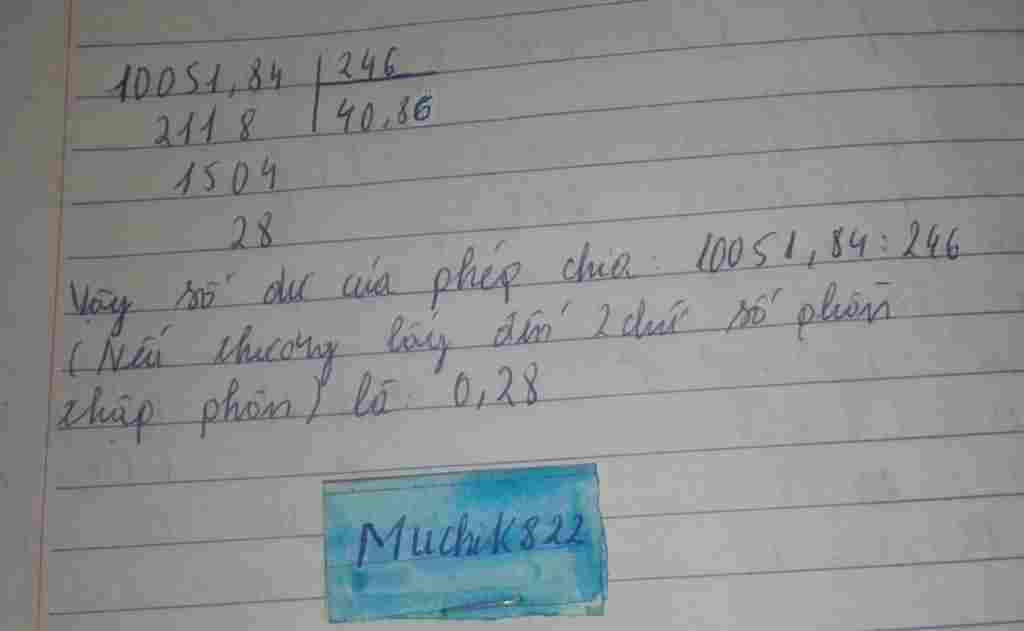 10051,84 | 246
2118 | 40,86
1504
28
Vậy số dư của phép chia: 10051,84:246
(Nếu thương lấy đến 2 chữ số phần
thập phân) là: 0,28
Muchik822